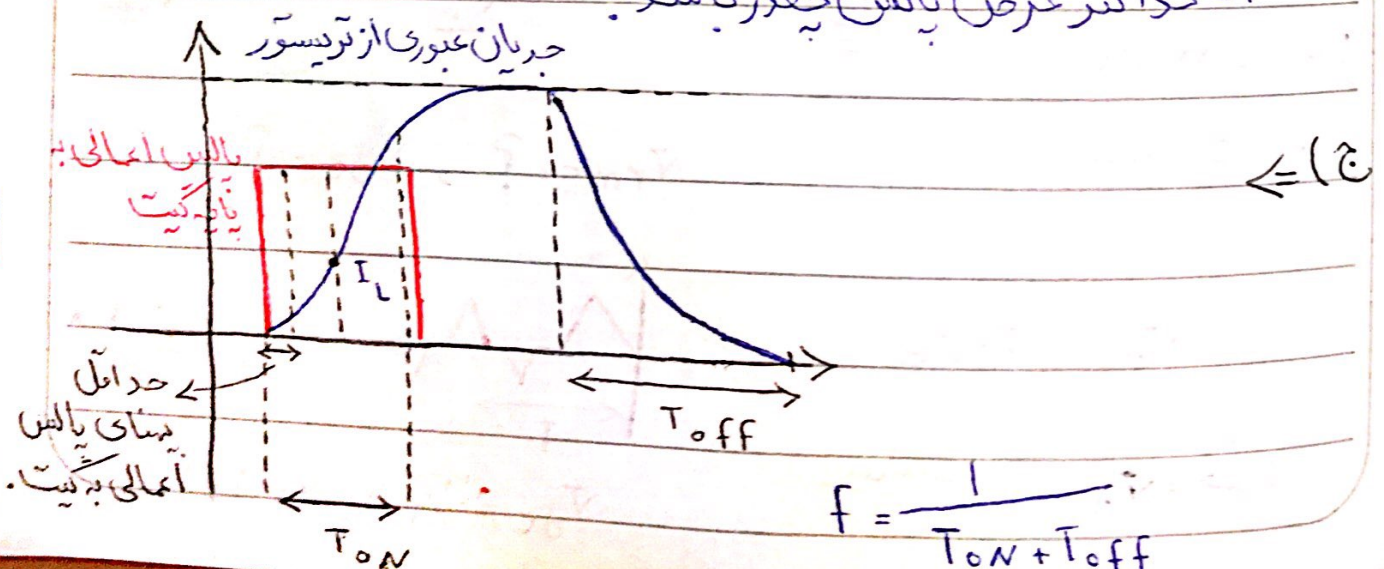 حداکثر عرض پالس چقدر باشد.
جریان عبوری از تریستور
ج) =>
پالس اعمالی به
پایه گیت
I_L
حداقل
پهنای پالس
اعمالی به گیت.
T_off
T_ON
f = 1 / (T_ON + T_off)